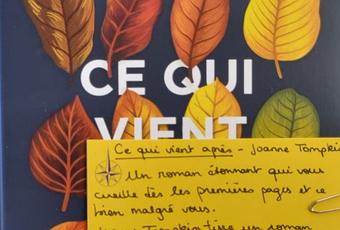 CE QUI
VIENT
Ce qui vient après - Joanne Tompkins
Un roman étonnant qui vous
cueille dès les premières pages et ce
bien malgré vous.
Tompkins tisse un roman